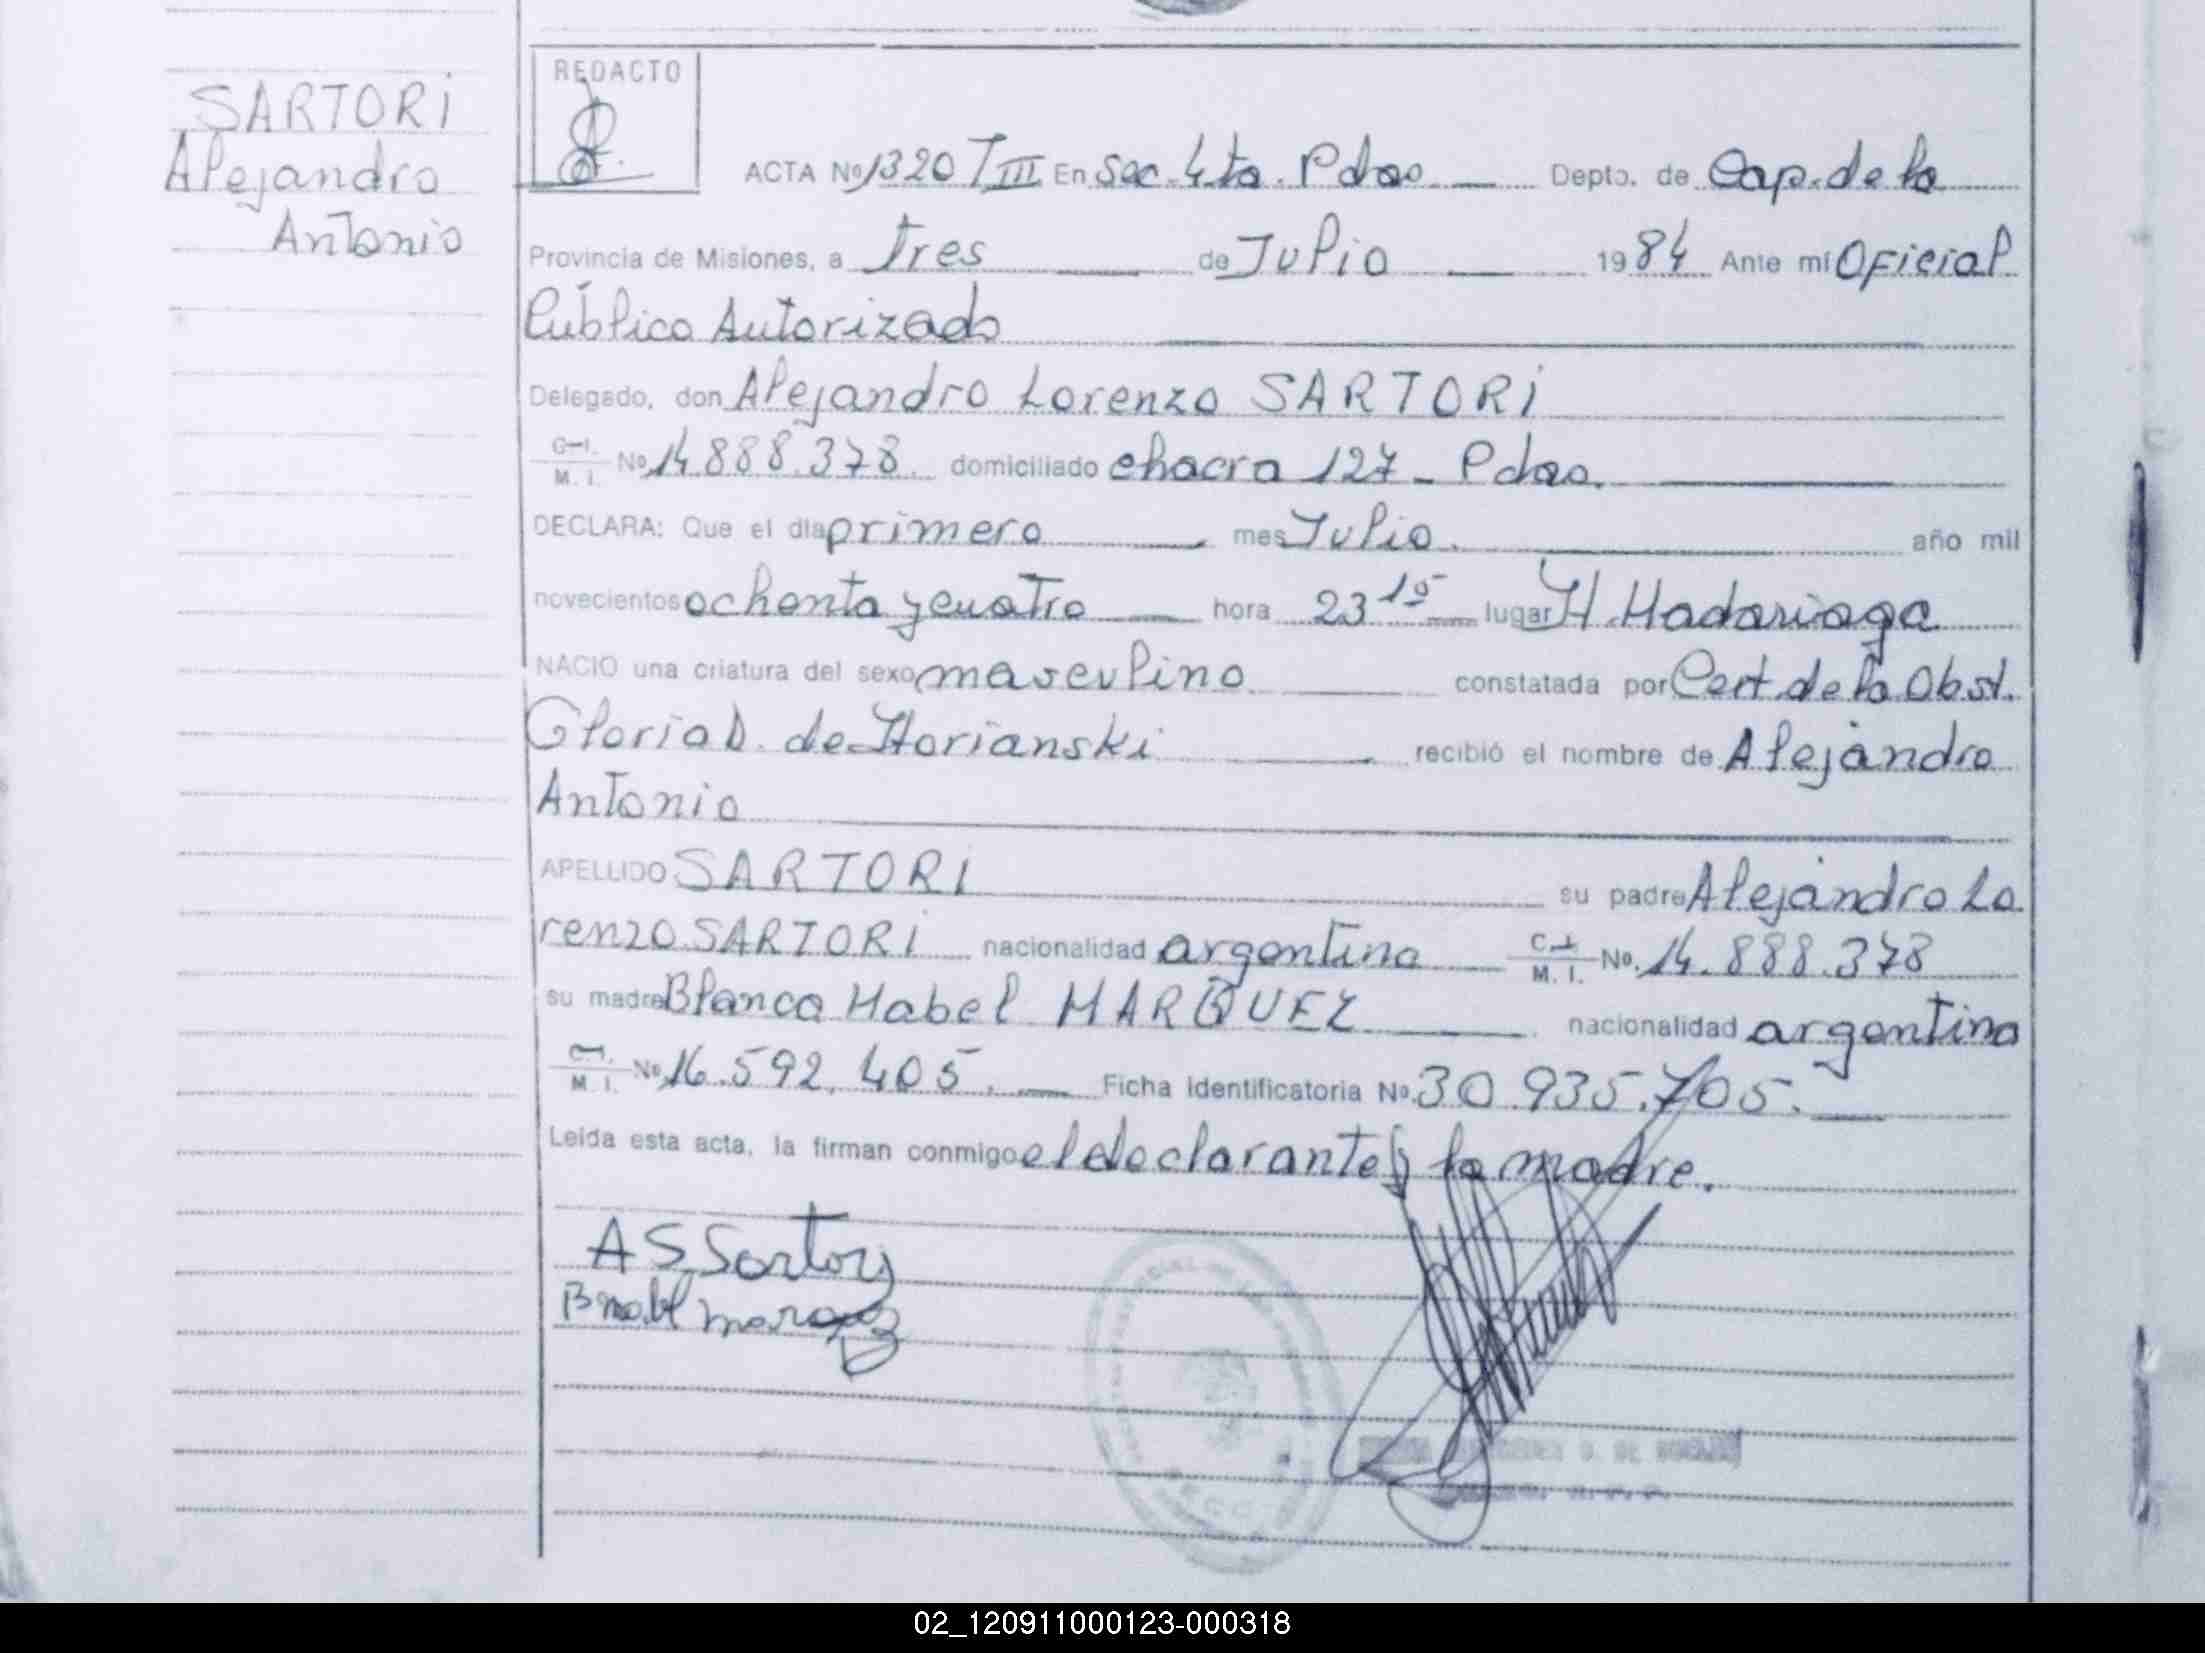 SARTORI
Alejandro
Antonio
REDACTO
ACTA Nº 1320 TIII En Sec. 4ta. Pdas Depto. de Cap. de la
Provincia de Misiones, a Tres de Julio 1984 Ante mí Oficial
Público Autorizado
Delegado, don Alejandro Lorenzo SARTORI
C.I. M. I. Nº 14.888.378. domiciliado chacra 127 - Pdas.
DECLARA: Que el día primero mes Julio. año mil
novecientos ochenta y cuatro hora 23 15 lugar H. Madariaga
NACIO una criatura del sexo masculino constatada por Cert. de la Obst.
Gloria D. de Horianski recibió el nombre de Alejandro
Antonio
APELLIDO SARTORI su padre Alejandro Lo
renzo SARTORI nacionalidad argentina C.I. M. I. Nº. 14.888.378
su madre Blanca Mabel MARQUEZ nacionalidad argentina
C.I. M. I. Nº 16.592.405. Ficha Identificatoria Nº 30.935.705.
Leída esta acta, la firman conmigo el declarante y la madre.
A S Sartori
B mabel marquez
02_120911000123-000318